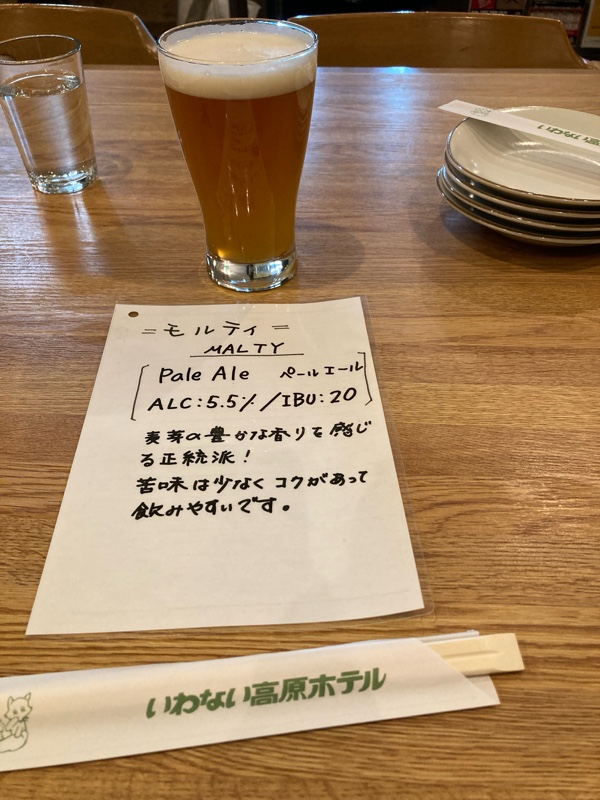 = モルティ =
MALTY
Pale Ale ペールエール
ALC:5.5% /IBU:20
麦芽の豊かな香りを感じ
る正統派!
苦味は少なく コクがあって
飲みやすいです。
いわない高原ホテル